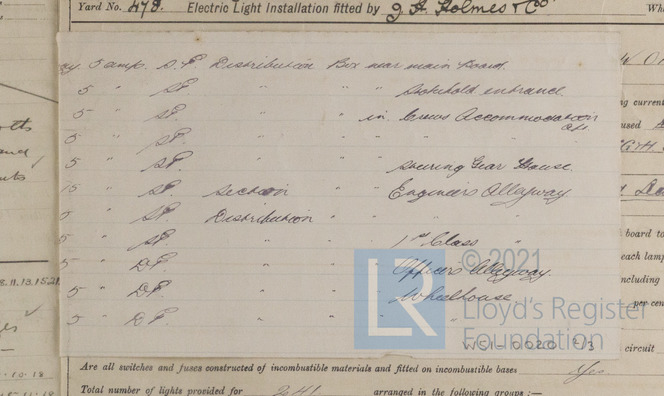 Yard No. 478. Electric Light Installation fitted by J H Holmes & Co
5 amp. S.P. Distribution Box near main Board.
5 " S.P. " " " entrance.
5 " S.P. " " in Crews Accommodation aft.
5 " S.P. " "
5 " S.P. " " Steering Gear House.
15 " S.P. Section " " Engineers Alleyway
5 " S.P. Distribution " " "
5 " S.P. " " 1st Class "
5 " D.P. " " Officers Alleyway.
5 " D.P. " " Wheelhouse
5 " D.P. " " "
© 2021
Lloyd's Register
Foundation
WS1-0020 2/3
ng current
used
board to
each lam
ncluding
per cen
circuit
8.11.13.15.21
Are all switches and fuses constructed of incombustible materials and fitted on incombustible bases Yes
Total number of lights provided for 241 arranged in the following groups :—